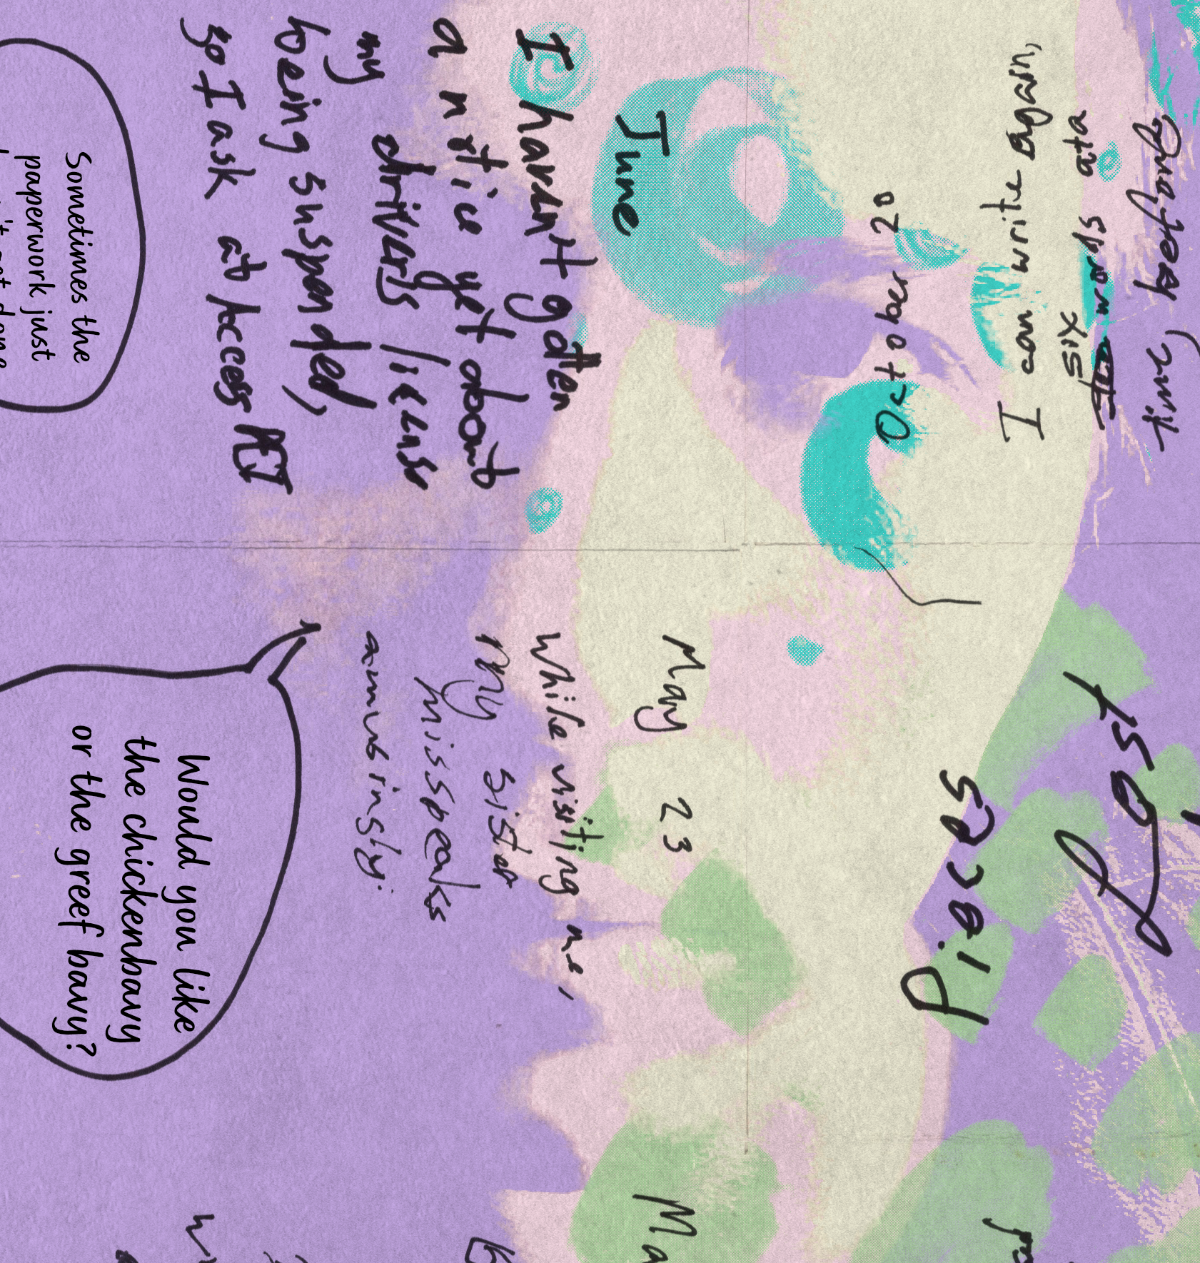 Lost
Pieces
October 20
I can write again,
six
words at a
time,
June
I haven't gotten
a notice yet about
my drivers license
being suspended,
so I ask at Access PEI
Sometimes the
paperwork just
May 23
While visiting me,
my sister
misspeaks
amusingly.
Would you like
the chickenbavy
or the greef bavy?
Ma